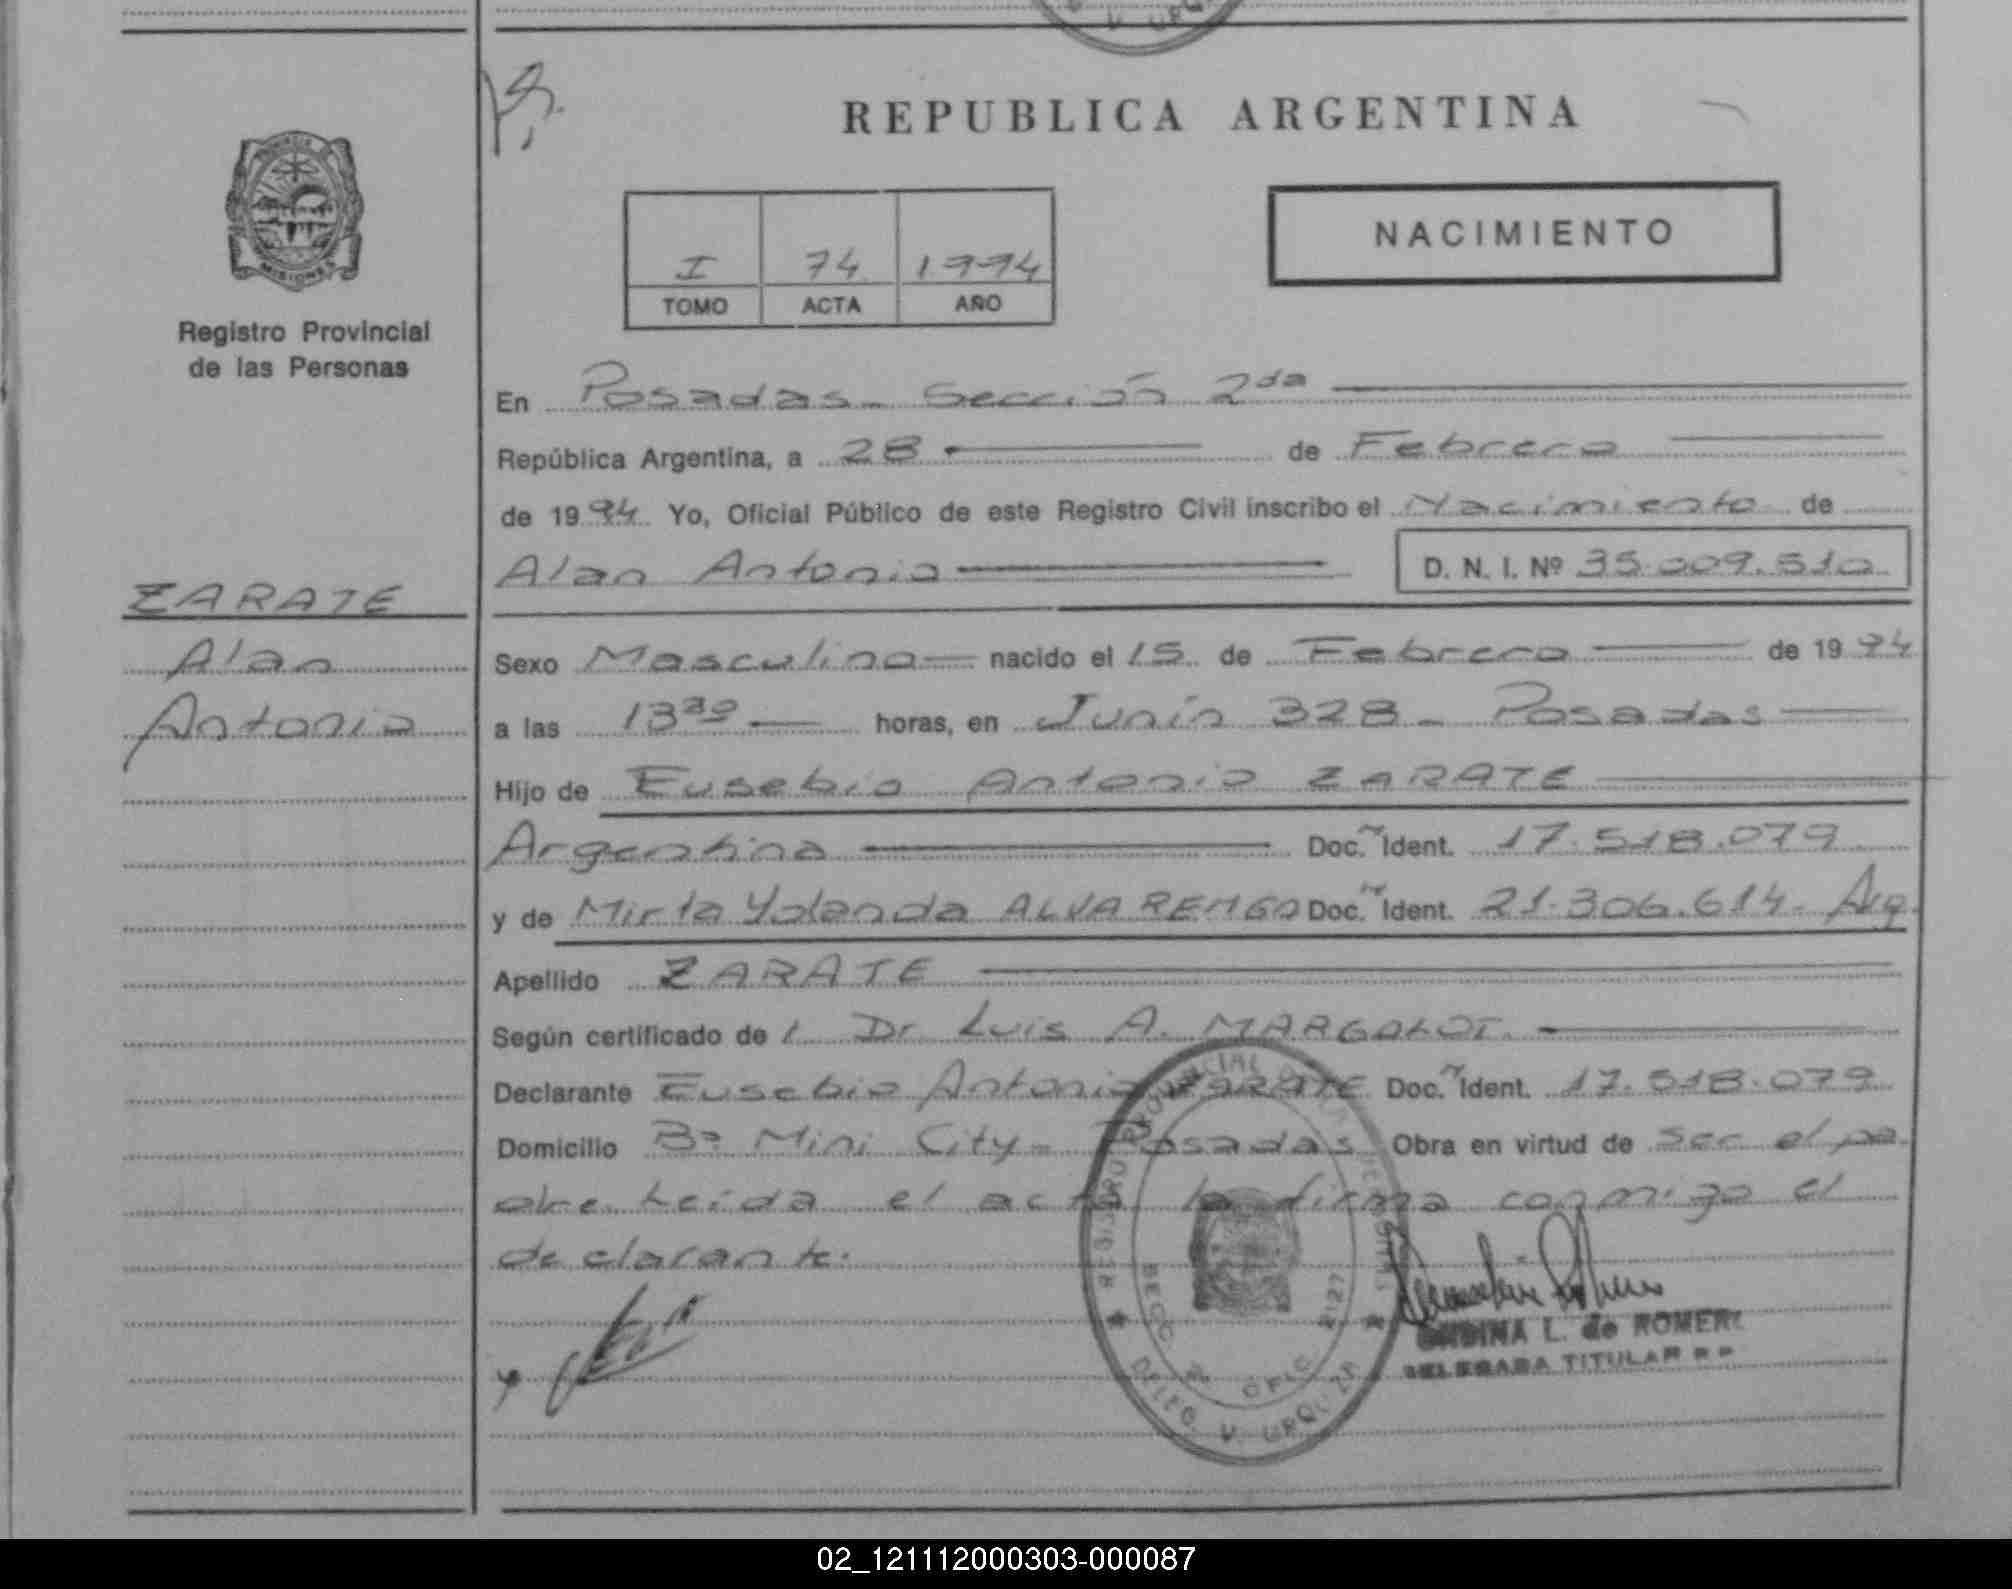 REPUBLICA ARGENTINA
NACIMIENTO
I 74 1994
TOMO ACTA AÑO
MISIONES
Registro Provincial
de las Personas
En Posadas - Sección 2da
República Argentina, a 28 de Febrero
de 1994 Yo, Oficial Público de este Registro Civil inscribo el Nacimiento de
Alan Antonio D. N. I. Nº 35.009.510
ZARATE
Alan
Antonio
Sexo Masculino nacido el 15 de Febrero de 1994
a las 13 horas, en Junín 328 - Posadas
Hijo de Eusebio Antonio ZARATE
Argentina Doc. Ident. 17.518.079
y de Mirta Yolanda ALVARENGA Doc. Ident. 21.306.614 - Arg.
Apellido ZARATE
Según certificado de l Dr Luis A. MARGALOT.
Declarante Eusebio Antonio ZARATE Doc. Ident. 17.518.079
Domicilio Bº Mini City - Posadas Obra en virtud de ser el pa
dre. Leída el acta la firma conmigo el
declarante.
REGISTRO PROVINCIAL DE LAS PERSONAS
SECC 2º OFIC 2127
DELEG. V. URQUIZA
L. de ROMERO
DELEGADA TITULAR R P
02_121112000303-000087